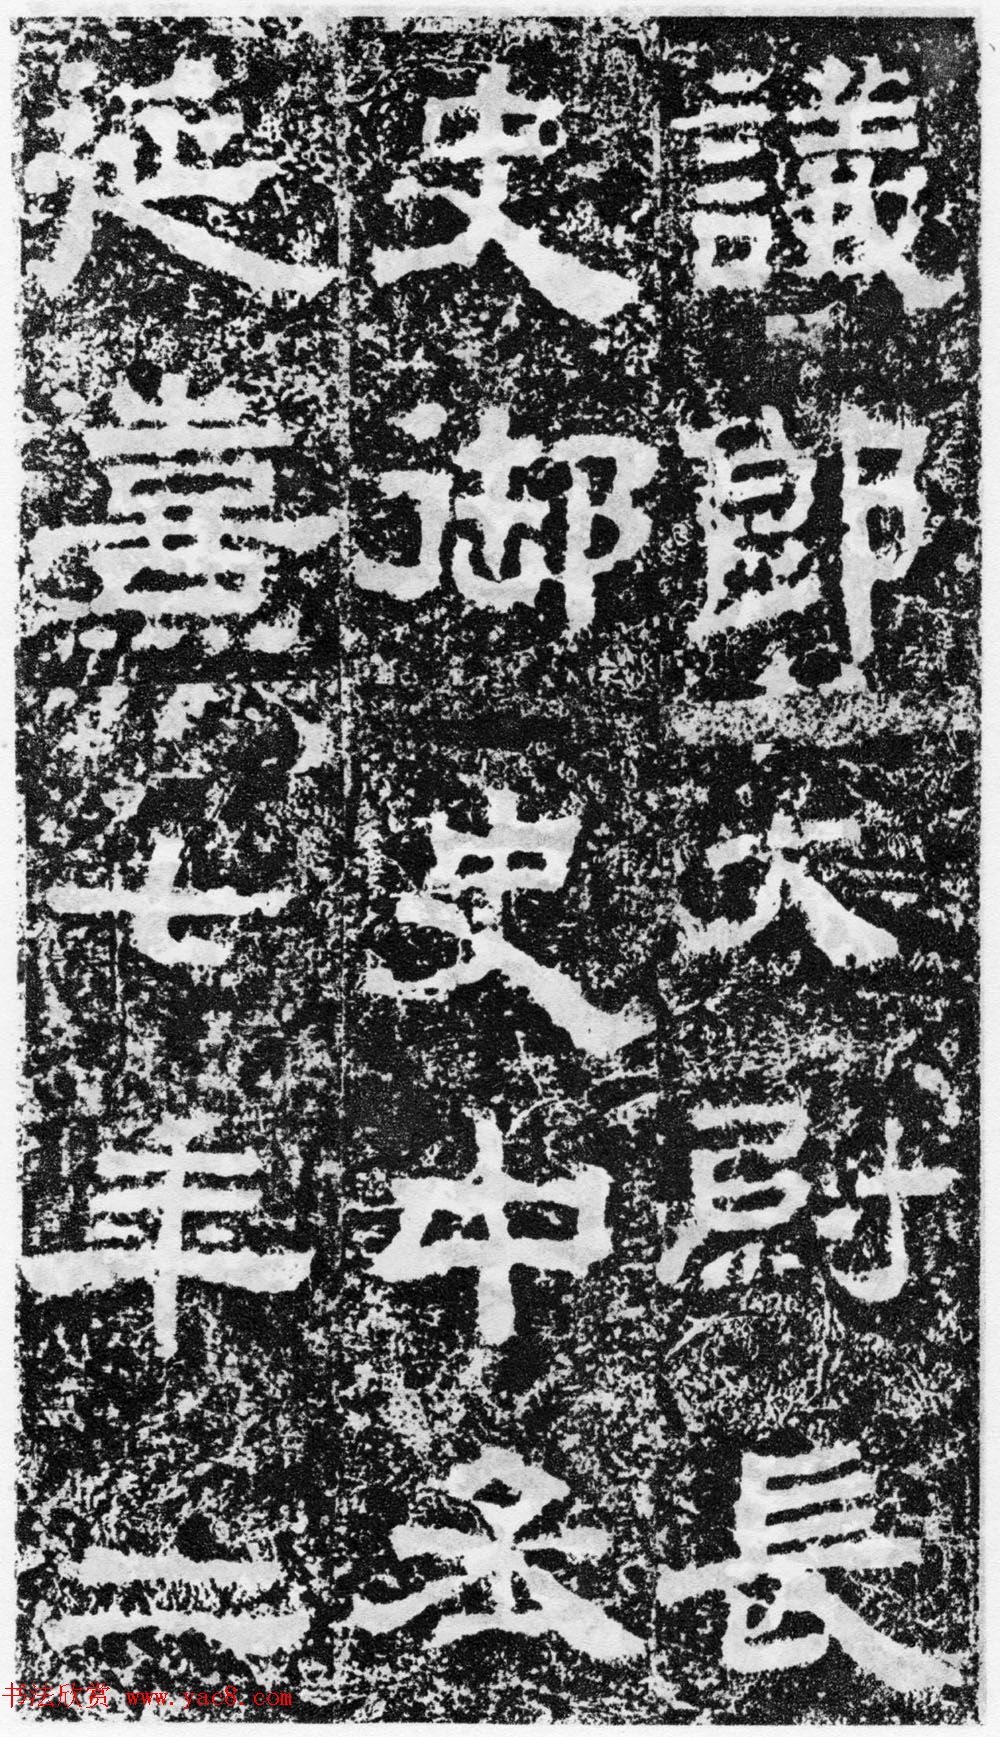 議郎大尉長
史御史中丞
延熹七年二
书法欣赏 www.yac8.com